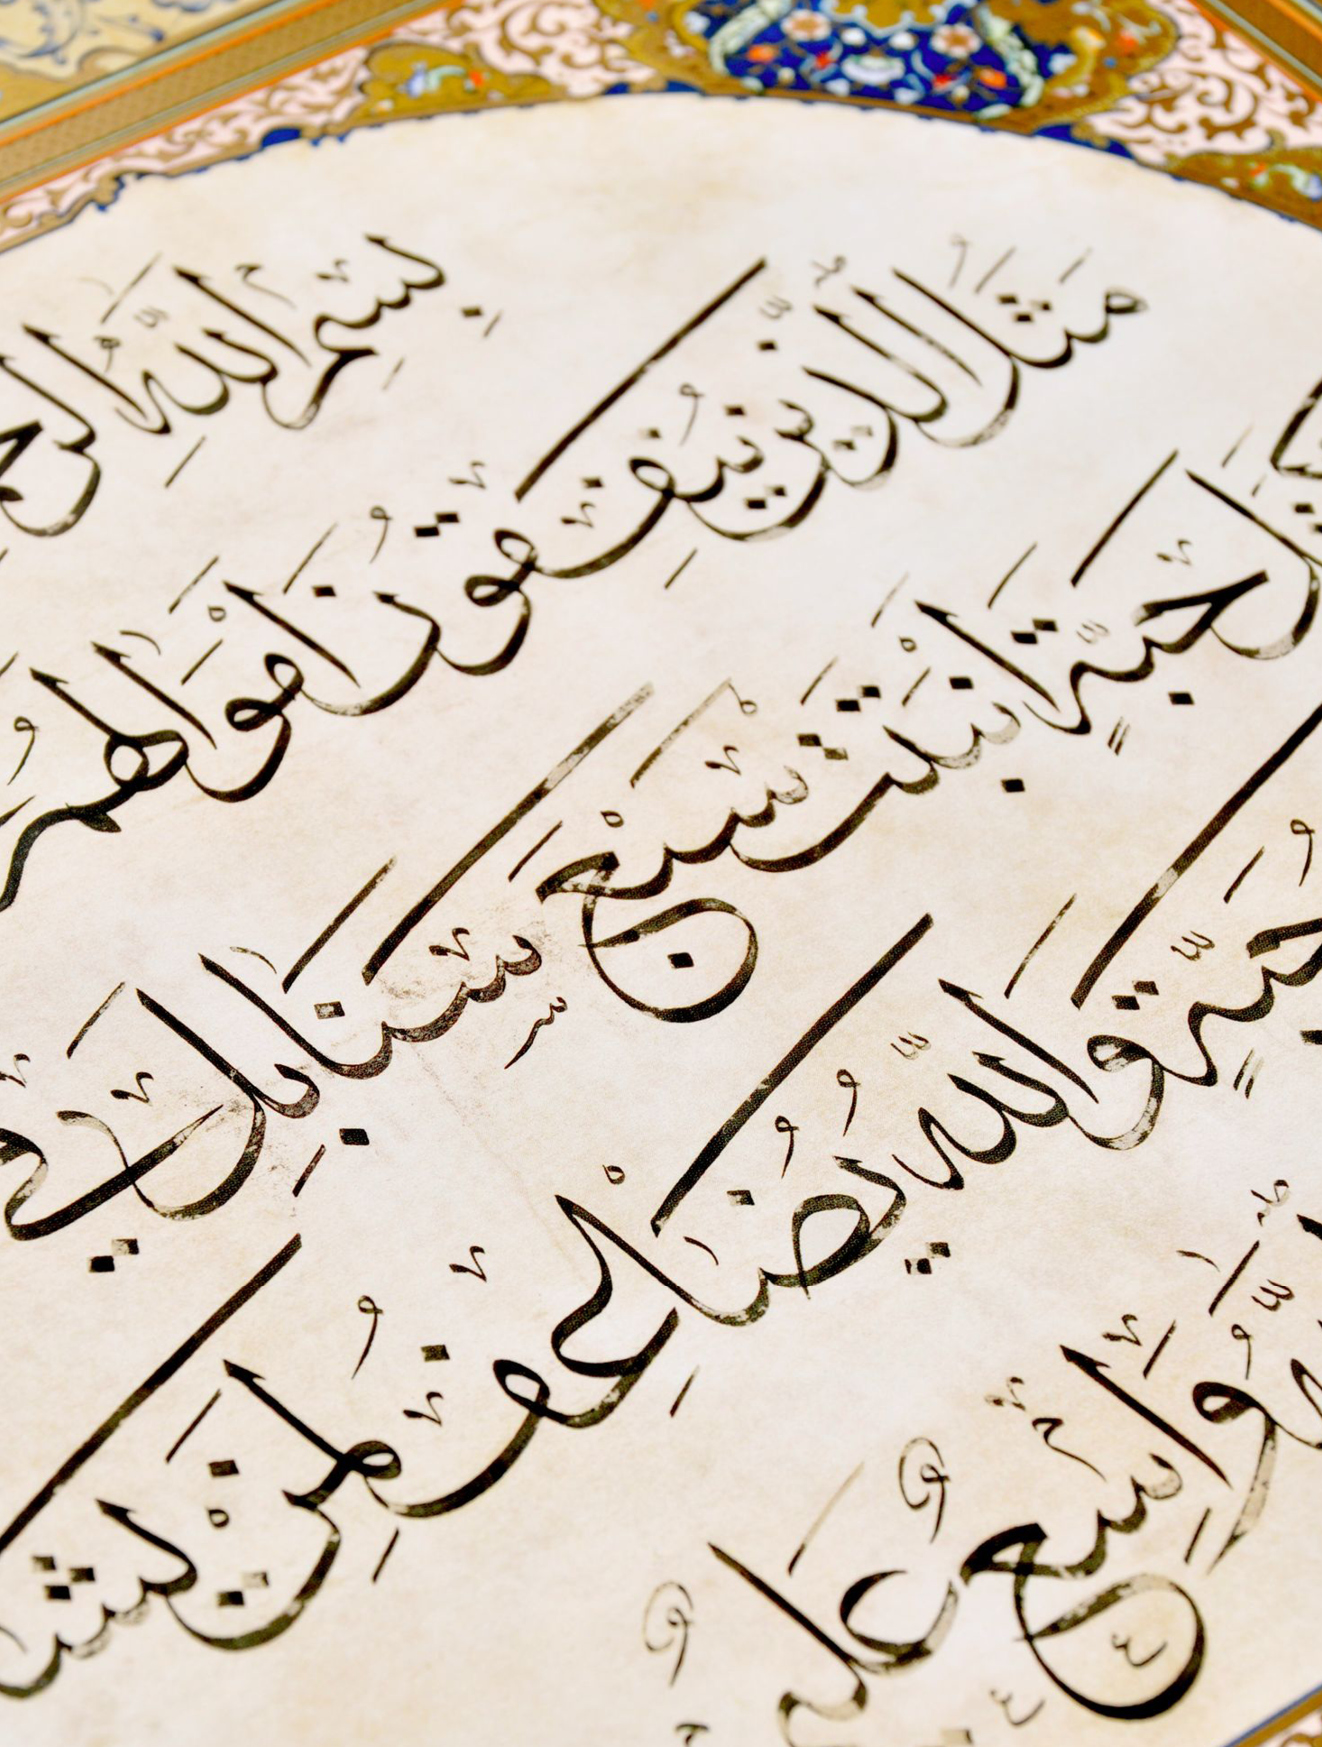 بِسْمِ اللَّهِ الرَّحـ
مَثَلُ الَّذِينَ يُنفِقُونَ أَمْوَالَهُمْ
حَبَّةٍ أَنبَتَتْ سَبْعَ سَنَابِلَ فِي
حَبَّةٍ وَاللَّهُ يُضَاعِفُ لِمَن يَشَا
وَاسِعٌ عَلِيمٌ